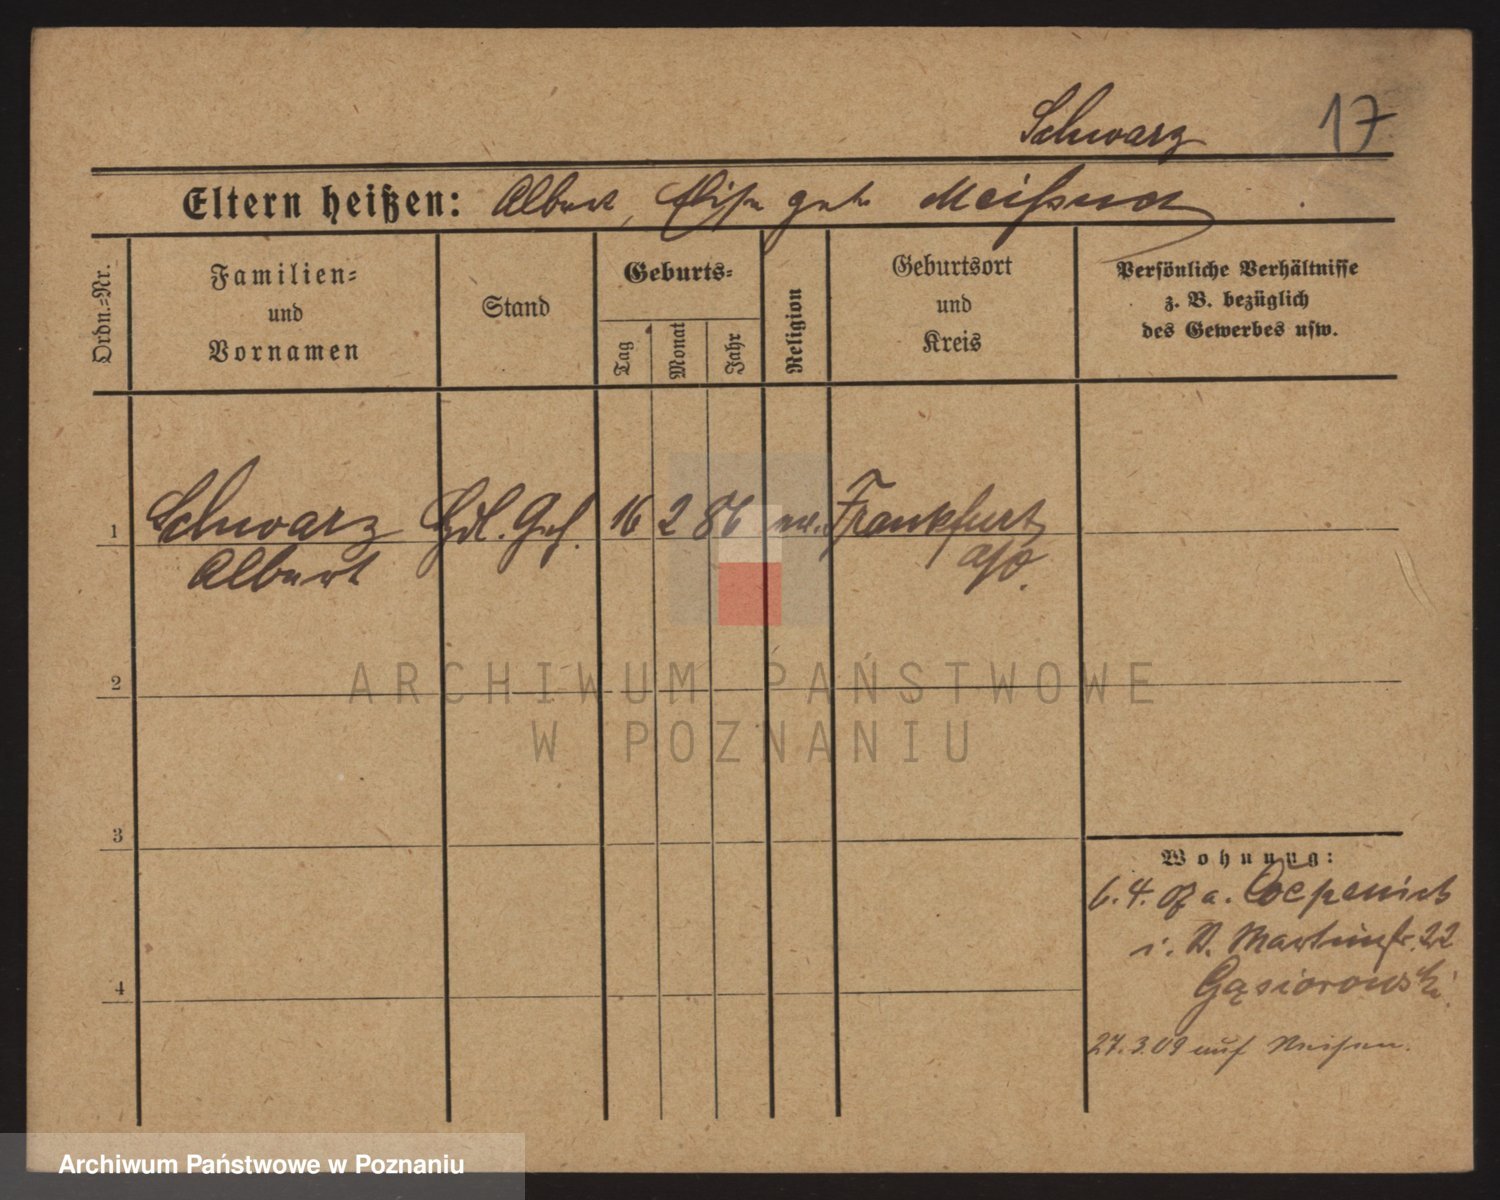 Schwarz 17
Eltern heißen: Albert, Elise geb. Meissner
Ordn.-Nr.
Familien-
und
Vornamen
Stand
Geburts-
Tag
Monat
Jahr
Religion
Geburtsort
und
Kreis
Persönliche Verhältnisse
z. B. bezüglich
des Gewerbes usw.
1 Schwarz Hdl. Geh. 16 2 86 Frankfurt
Albert a/O.
2
ARCHIWUM PAŃSTWOWE
W POZNANIU
3
Wohnung:
6.4. a. Coepenick
i. Martinstr. 22
Gąsiorowski.
4
27.3.09 auf Reisen.
Archiwum Państwowe w Poznaniu